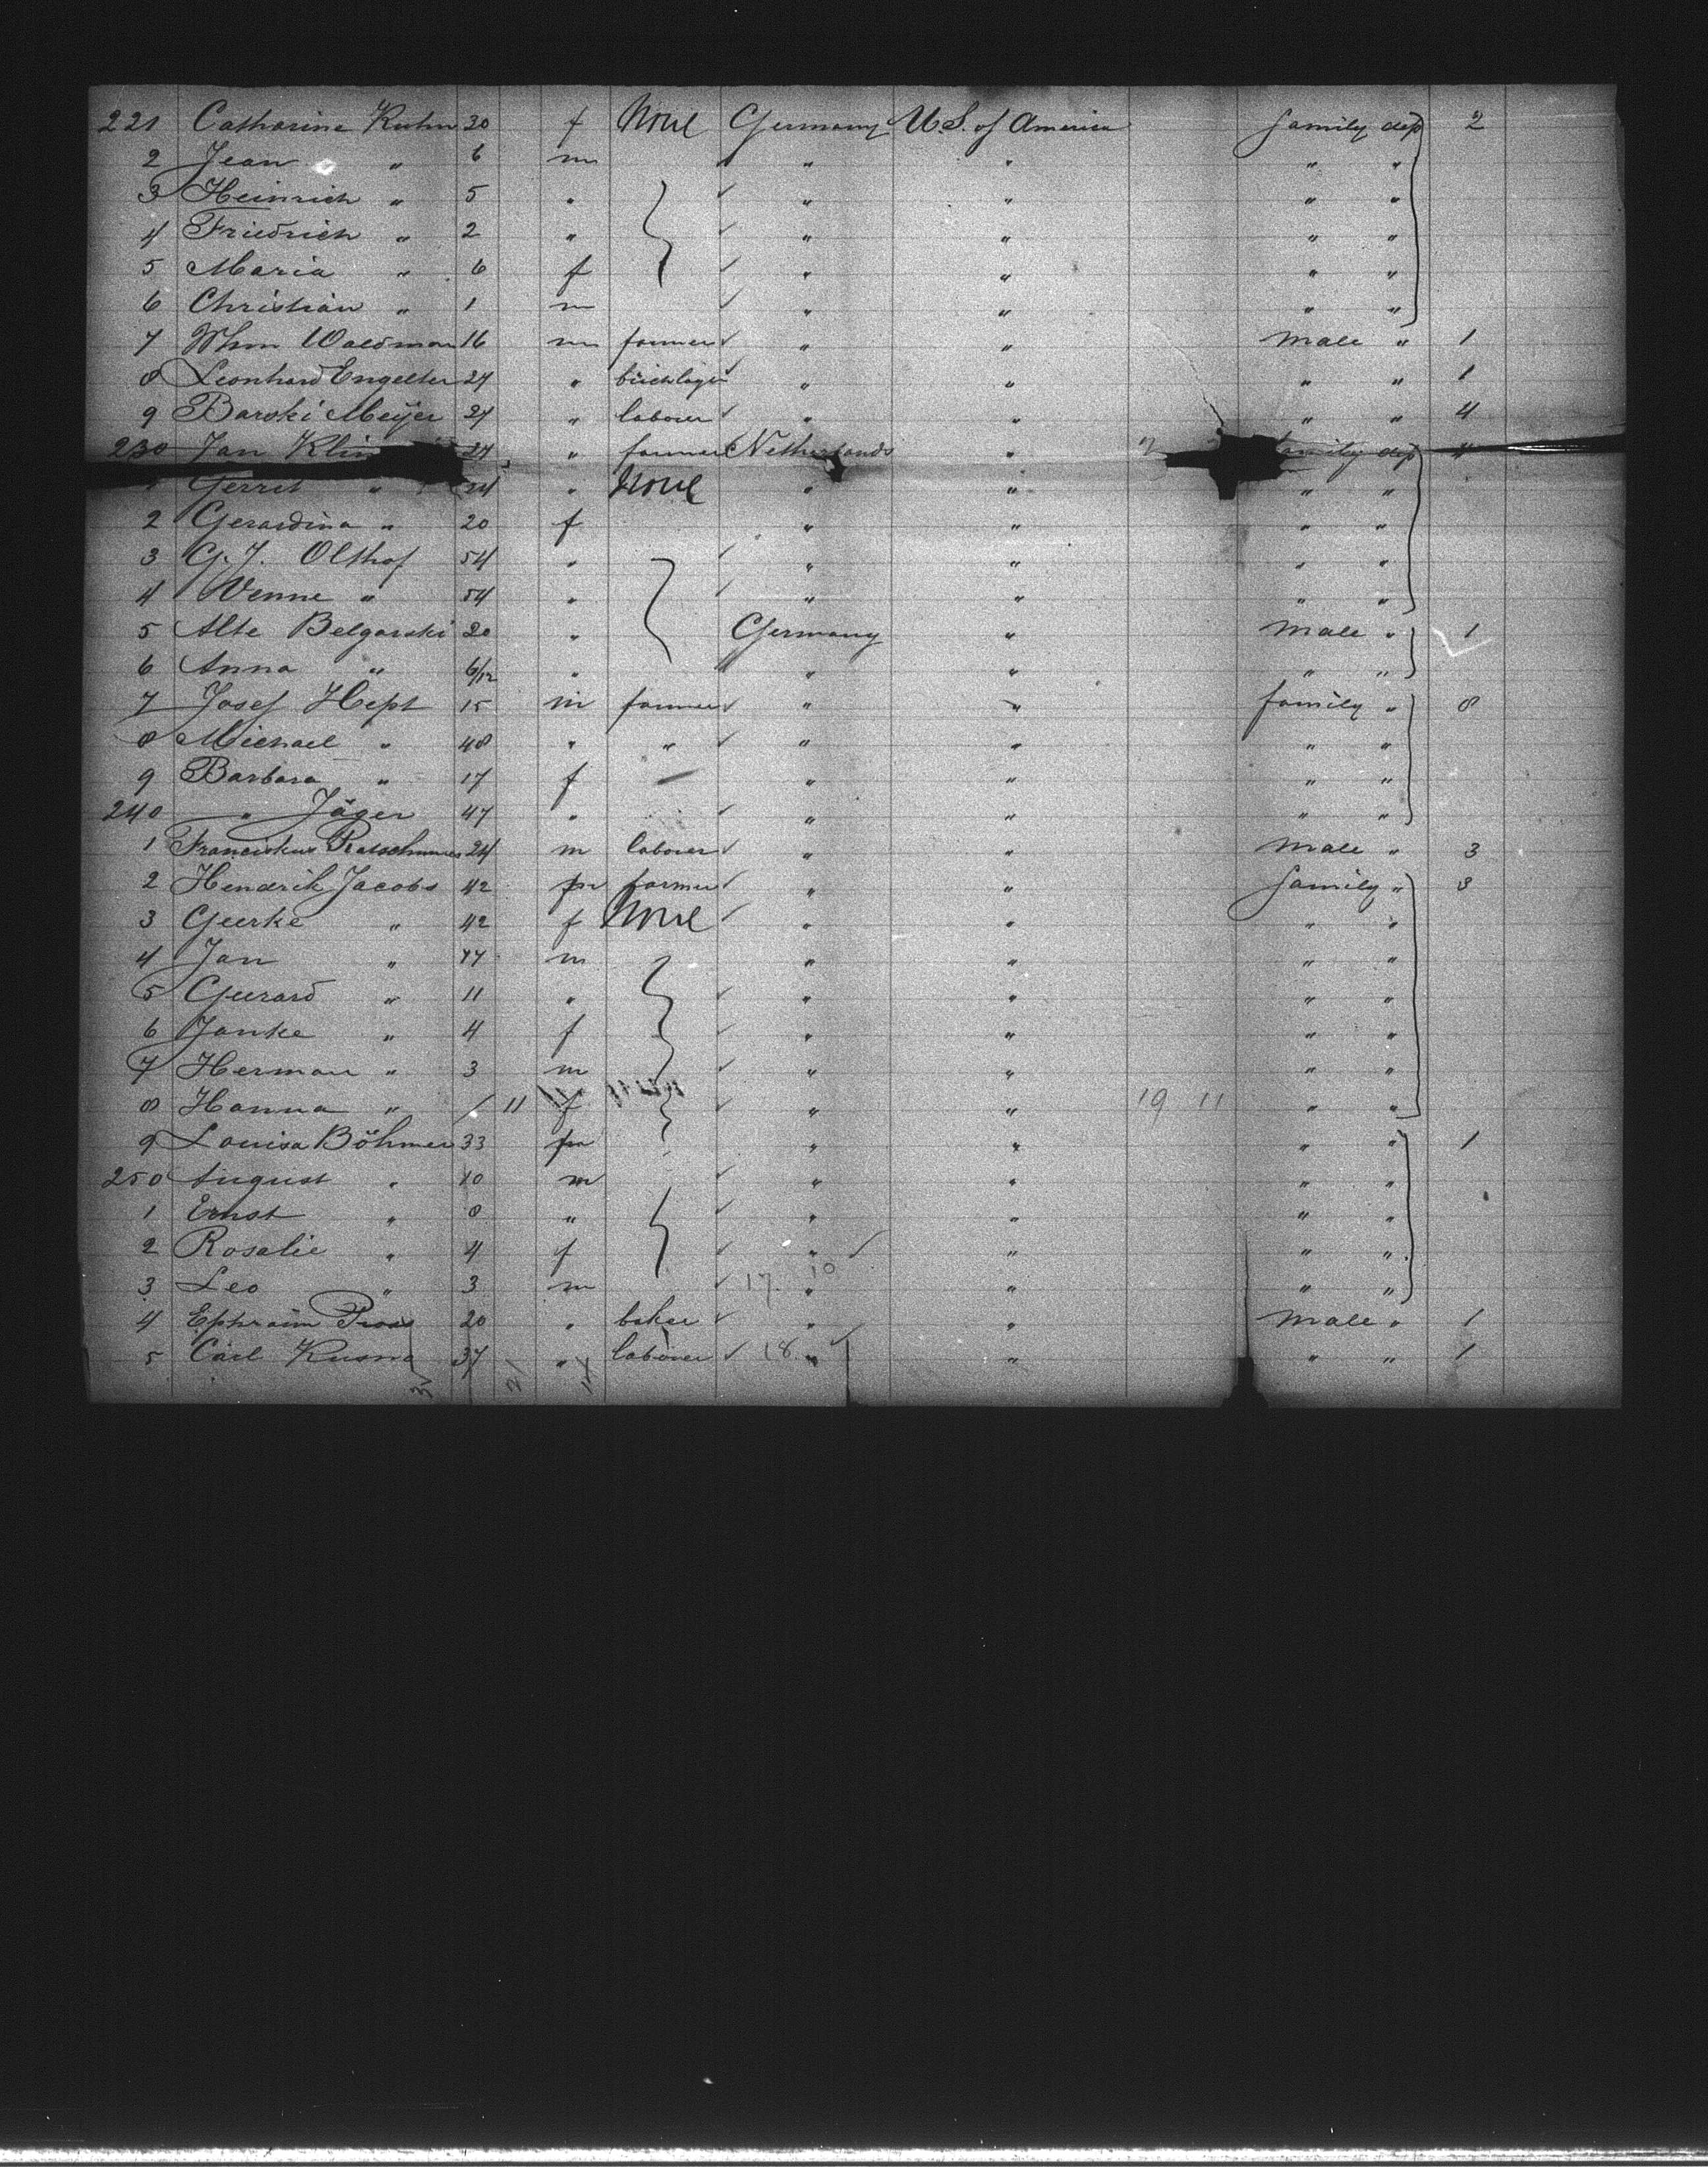 221 Catharina Kuhn 30 f None Germany U.S. of America family dep 2
2 Jean " 6 m " " " "
3 Heinrich " 5 " " " " "
4 Friedrich " 2 " " " " "
5 Maria " 6 f " " " "
6 Christian " 1 m " " " "
7 Whm Waldman 16 m farmer " " male " 1
8 Leonhard Engelter 24 " bricklayer " " " " 1
9 Barski Meÿer 24 " laborer " " " " 4
230 Jan 24 " farmer Netherlands " family dep 4
Gerrit " 24 " None " " " "
2 Gerardina " 20 f " " " "
3 G.J. Olthof 54 " " " " "
4 Wenne " 54 " " " " "
5 Alte Belgarski 20 " Germany " male " 1
6 Anna " 6/12 " " " " "
7 Josef Hept 15 m farmer " " family " 8
8 Michael " 48 " " " " " "
9 Barbara " 17 f — " " " "
240 " Jäger 47 " " " " "
1 Franciskus 24 m laborer " " male " 3
2 Hendrik Jacobs 42 m farmer " " family " 3
3 Geerke " 42 f None " " " "
4 Jan " 44 m " " " "
5 Geerard " 11 " " " " "
6 Janke " 4 f " " " "
7 Herman " 3 m " " " "
8 Hanna " / 11 f " " 19 11 " "
9 Louisa Böhmer 33 " " " " 1
250 August " 10 m " " " "
1 Ernst " 8 " " " " "
2 Rosalie " 4 f " " " "
3 Leo " 3 m 17 10 " " " "
4 Ephraim 20 " baker " " male " 1
5 Carl 37 " laborer 18 " " " " 1